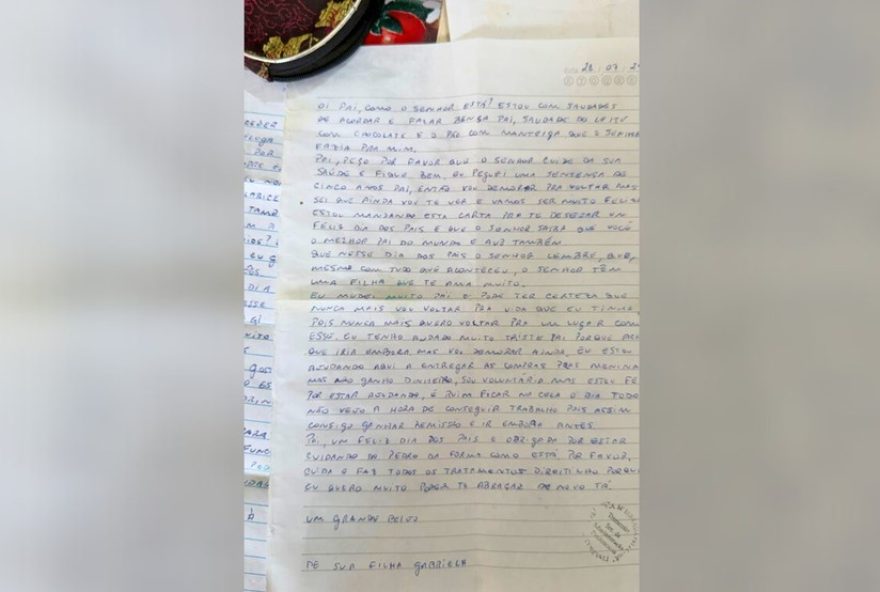 28 07 2
OI PAI, COMO O SENHOR ESTÁ? ESTOU COM SAUDADES
DE ACORDAR E FALAR BENÇA PAI, SAUDADE DO LEITE
COM CHOCOLATE E O PÃO COM MANTEIGA QUE O
FAZIA PRA MIM.
PAI, PEÇO POR FAVOR QUE O SENHOR CUIDE DA SUA
SAÚDE E FIQUE BEM. EU PEGUEI UMA SENTENÇA DE
CINCO ANOS PAI, ENTÃO VOU DEMORAR PRA VOLTAR MAS
SEI QUE AINDA VOU TE VER E VAMOS SER MUITO FELIZ
ESTOU MANDANDO ESTA CARTA PRA TE DESEJAR UM
FELIZ DIA DOS PAIS E QUE O SENHOR SAIBA QUE VOCÊ É
O MELHOR PAI DO MUNDO E AVÔ TAMBÉM.
QUE NESSE DIA DOS PAIS O SENHOR LEMBRE, QUE,
MESMO COM TUDO QUE ACONTECEU, O SENHOR TÊM
UMA FILHA QUE TE AMA MUITO.
EU MUDEI MUITO PAI E PODE TER CERTEZA QUE
NUNCA MAIS VOU VOLTAR PRA VIDA QUE EU TINHA,
POIS NUNCA MAIS QUERO VOLTAR PRA UM LUGAR COMO
ESSE. EU TENHO ANDADO MUITO TRISTE PAI PORQUE
QUE IRIA EMBORA MAS VOU DEMORAR AINDA, EU ESTOU
AJUDANDO AQUI A ENTREGAR AS COMPRAS PRAS MENINA
MAS NÃO GANHO DINHEIRO, SOU VOLUNTÁRIA MAS ESTOU FE
POR ESTAR AJUDANDO, É RUIM FICAR NA CELA O DIA TODO
NÃO VEJO A HORA DE CONSEGUIR TRABALHO POIS ASSIM
CONSIGO GANHAR REMISSÃO E IR EMBORA ANTES.
PAI, UM FELIZ DIA DOS PAIS E OBRIGADA POR ESTAR
CUIDANDO DO PEDRO DA FORMA COMO ESTÁ POR FAVOR,
CUIDA E FAZ TODOS OS TRATAMENTOS DIREITINHO PORQUE
EU QUERO MUITO PODER TE ABRAÇAR DE NOVO TÁ.
UM GRANDE BEIJO
DE SUA FILHA GABRIELA